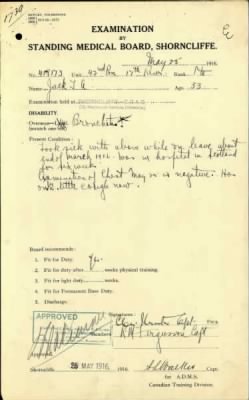 1739
EXAMINATION
BY
STANDING MEDICAL BOARD, SHORNCLIFFE.
May 25 1916.
No. 42nd Bn. 17th Rank Pte
Name Jack F. A. Age 33
Examination held at
DISABILITY
Overseas Bronchitis
(scratch one out)
Took sick with above while on leave about
end of March 1916. Was in hospital in Scotland
for six weeks.
Examination of Chest May 25 is negative. Has
only little cough now.
Board recommends:
1. Fit for Duty. Yes.
2. Fit for duty after weeks physical training
3. Fit for light duty weeks.
4. Fit for Permanent Base Duty.
5. Discharge.
APPROVED
Signatures Capt.
Ferguson Capt
Shorncliffe 25 MAY 1916. 1916.
Capt
for A.D.M.S.
Canadian Training Division.